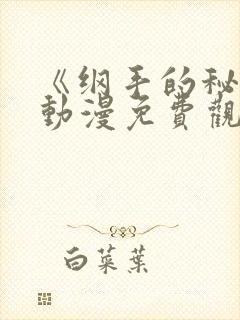 《纲手的秘
動漫免費觀
白菜葉